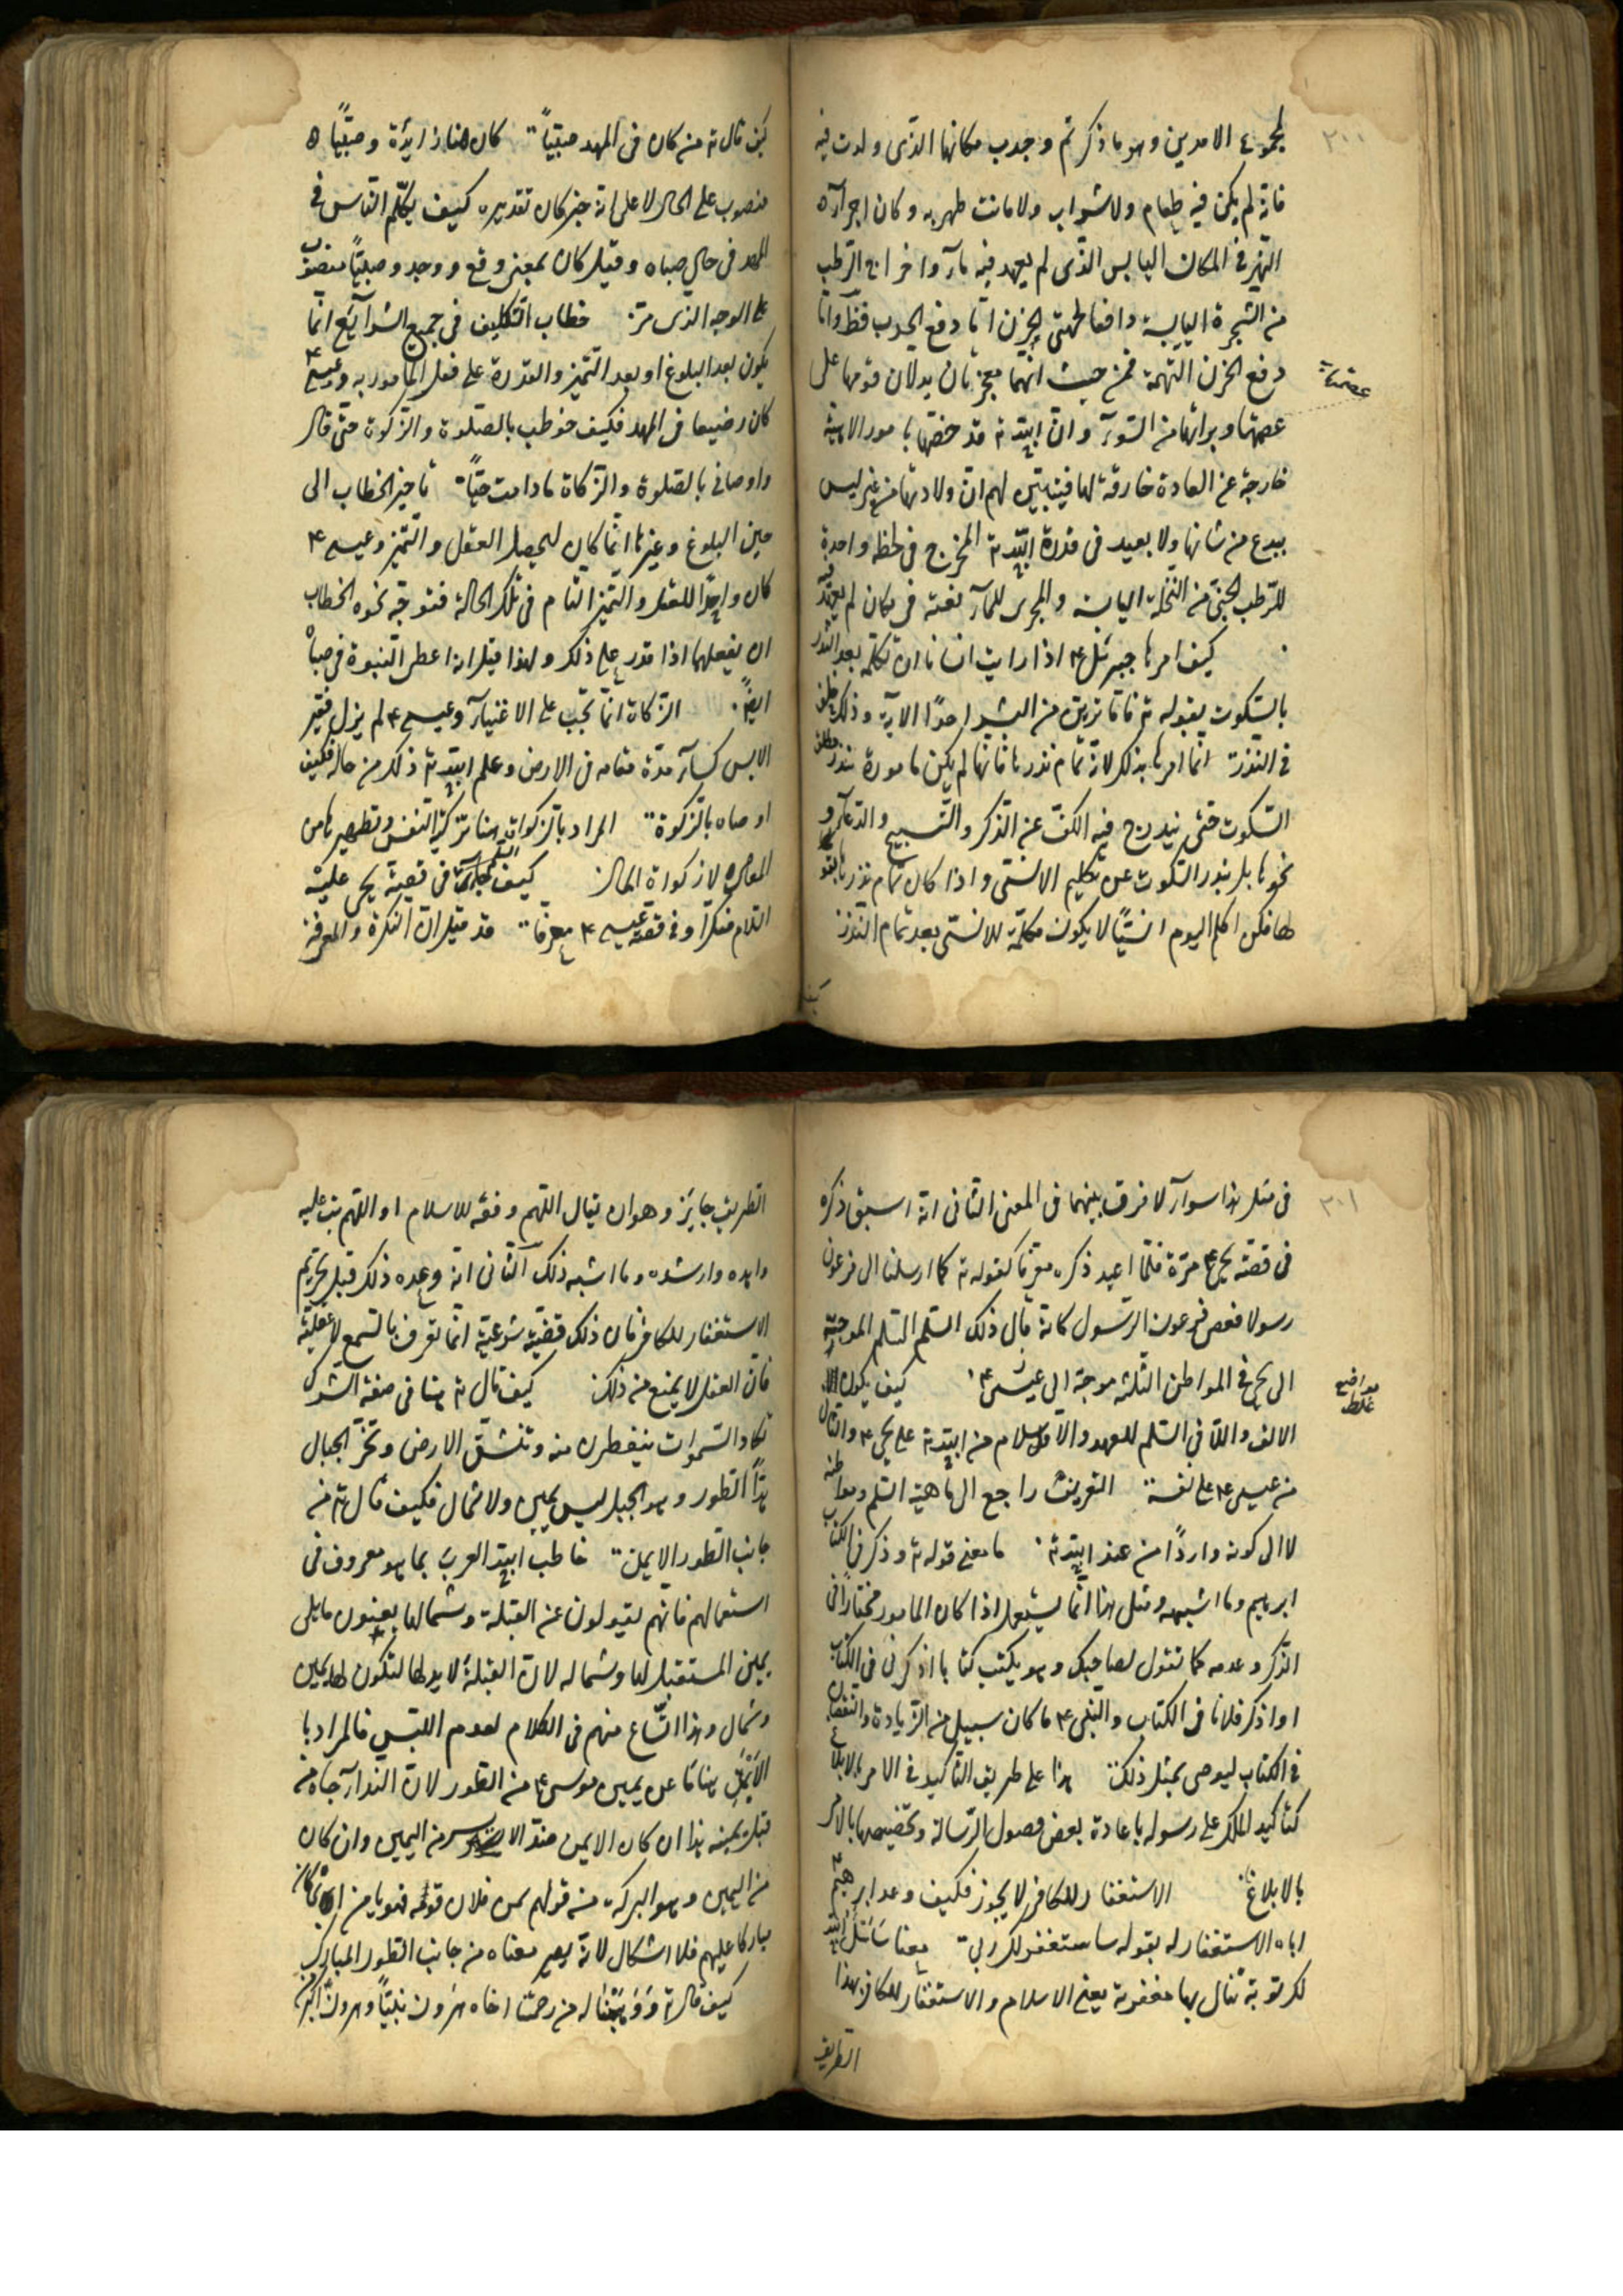 ٢٠٠
لمجموع الامرين وهو ما ذكر ثم وجدب مكانها الذى ولدت فيه
فانه لم يكن فيه طعام ولا شراب ولا مانت طهر به وكان اجرآءه
النهر فى المكان اليابس الذى لم يعهد فيه مآء واخراج الرطب
من الشجرة اليابسة دافعا لجهتى الحزن اما دفع الجدب فظ واما
دفع الحزن التهمة فمن حيث انهما معجزتان يدلان قومها على
عصمتها وبرائتها من السوء وان الله ته قد خصها بامور الاهية
خارجة عن العادة خارقة لها فيتبين لهم ان ولادتها من غير ليس
ببدع من شانها ولا بعيد فى قدرة الله ته المخرج فى لحظة واحدة
للرطب الجنى من النخلة اليابسة والمجرى للمآء بغتة فى مكان لم يعهد فيه
كيف امرها جبرئل ع اذا رايت انسانا ان تكلمه بعد النذر
بالسكوت بقوله ته فاما ترين من البشر احدا الاية وذلك خلف
فى النذر انما امرها بذلك لانه تمام نذرها فانها لم يكن مامورة بنذر مطلق
السكوت حتى يندرج فيه الكف عن الذكر والتسبيح والدعآء و
نحوها بل بنذر السكوت عن تكليم الانسى واذا كان تمام نذرها بقو
لها فلن اكلم اليوم انسيا لا يكون مكلمة للانسى بعد تمام النذر
كيف
عصمتها
كيف قال ته من كان فى المهد صبيا كان هنا زايدة وصبيا ه
منصوب على الحال لا على انه خبر كان تقديره كيف يكلم الناس فى
المهد فى حال صباه وقيل كان بمعنى وقع ووجد وصبيا منصوب
على الوجه الذى مر خطاب التكليف فى جميع الشرآيع انما
يكون بعد البلوغ او بعد التميز والقدرة على فعل المامور به وعيسى ع
كان رضيعا فى المهد فكيف خوطب بالصلوة والزكوة حتى قال
واوصانى بالصلوة والزكاة ما دامت حيا تاخير الخطاب الى
حين البلوغ وغيرها انما كان ليحصل العقل والتميز وعيسى ع
كان واجدا للعقل والتميز التام فى تلك الحالة فتوجه نحوه الخطاب
ان يفعلهما اذا قدر على ذلك ولهذا قيل انه اعطى النبوة فى صباه
ايضا الزكاة انما تجب على الاغنيآء وعيسى ع لم يزل فقير
الابس كسآء مدة مقامه فى الارض وعلم الله ته ذلك من حاله فكيف
اوصاه بالزكوة المراد بالزكواة هنا تزكية النفس وتطهيرها من
المعاصى لا زكواة المال كيف جاء السلام فى قصة يحيى عليه
السلام منكرا وفى قصة عيسى ع معرفا قد قيل ان النكرة والمعرفة
٢٠١
فى مثل هذا سوآء لا فرق بينهما فى المعنى الثانى انه اسبق ذكره
فى قصة يحيى ع مرة فلما اعيد ذكره معرفا كقوله ته كما ارسلنا الى فرعون
رسولا فعصى فرعون الرسول كانه قال ذلك السلم السلم الموجه
الى يحيى فى المواطن الثلثة موجه الى عيسى ع كيف يكون
الالف واللام فى السلم للعهد والاول سلام من الله ته على يحيى ع والثانى
من عيسى ع على نفسه التعريف راجع الى ماهية السلم ومواطنه
لا الى كونه واردا من عند الله ته ما معنى قوله ته وذكر فى الكتاب
ابرهيم وما اشبهه ومثل هذا انما يستعمل اذا كان المامور مختارا فى
الذكر وعدمه كما تقول لصاحبك وهو يكتب كتابا اذكرنى فى الكتاب
او اذكر فلانا فى الكتاب والنبى ع ما كان سبيل من الزيادة والنقصان
فى الكتاب ليوصى بمثل ذلك هذا على طريق التاكيد فى الامر بالابلاغ
كتاكيد الملك على رسوله باعادة بعض فصول الرسالة وتخصيصها بالامر
بالابلاغ الاستغفار للكافر لا يجوز فكيف وعد ابرهيم ع
اباه الاستغفار له بقوله ساستغفر لك ربى معنا ساسئل الله
لك توبة تنال بها مغفرته يعنى الاسلام والاستغفار للكافر بهذا
الطريق
مواضع
غلط
الطريق جايز وهو ان يقال اللهم وفقه للاسلام او اللهم تب عليه
واهده وارشده وما اشبه ذلك الثانى انه وعده ذلك قبل تحريم
الاستغفار للكافر فان ذلك قضية شرعية انما تعرف بالسمع لا عقلية
فان العقل لا يمنع من ذلك كيف قال ته هنا فى صفة الشرك
تكاد السموات يتفطرن منه وتنشق الارض وتخر الجبال
هدا الطور وهو الجبل ليس له يمين ولا شمال فكيف قال ته من
جانب الطور الايمن خاطب الله العرب بما هو معروف فى
استعمالهم فانهم يقولون عن القبلة وشمالها يعنون ما يلى
يمين المستقبل لها وشماله لان القبلة لا يد لها لتكون لها يمين
وشمال وهذا اتساع منهم فى الكلام لعدم اللبس فالمراد با
الايمن هنا ما عن يمين موسى ع من الطور لان الندآء جاه من
قبل يمينه هذا ان كان الايمن ضد الايسر من اليمين وان كان
من اليمين وهو البركة من قولهم يمن فلان قومه فهو يامن اى كان
مباركا عليهم فلا اشكال لانه يصير معناه من جانب الطور المبارك
كيف قال ته ووهبنا له من رحمتنا اخاه هرون نبيا وهرون اكبر من